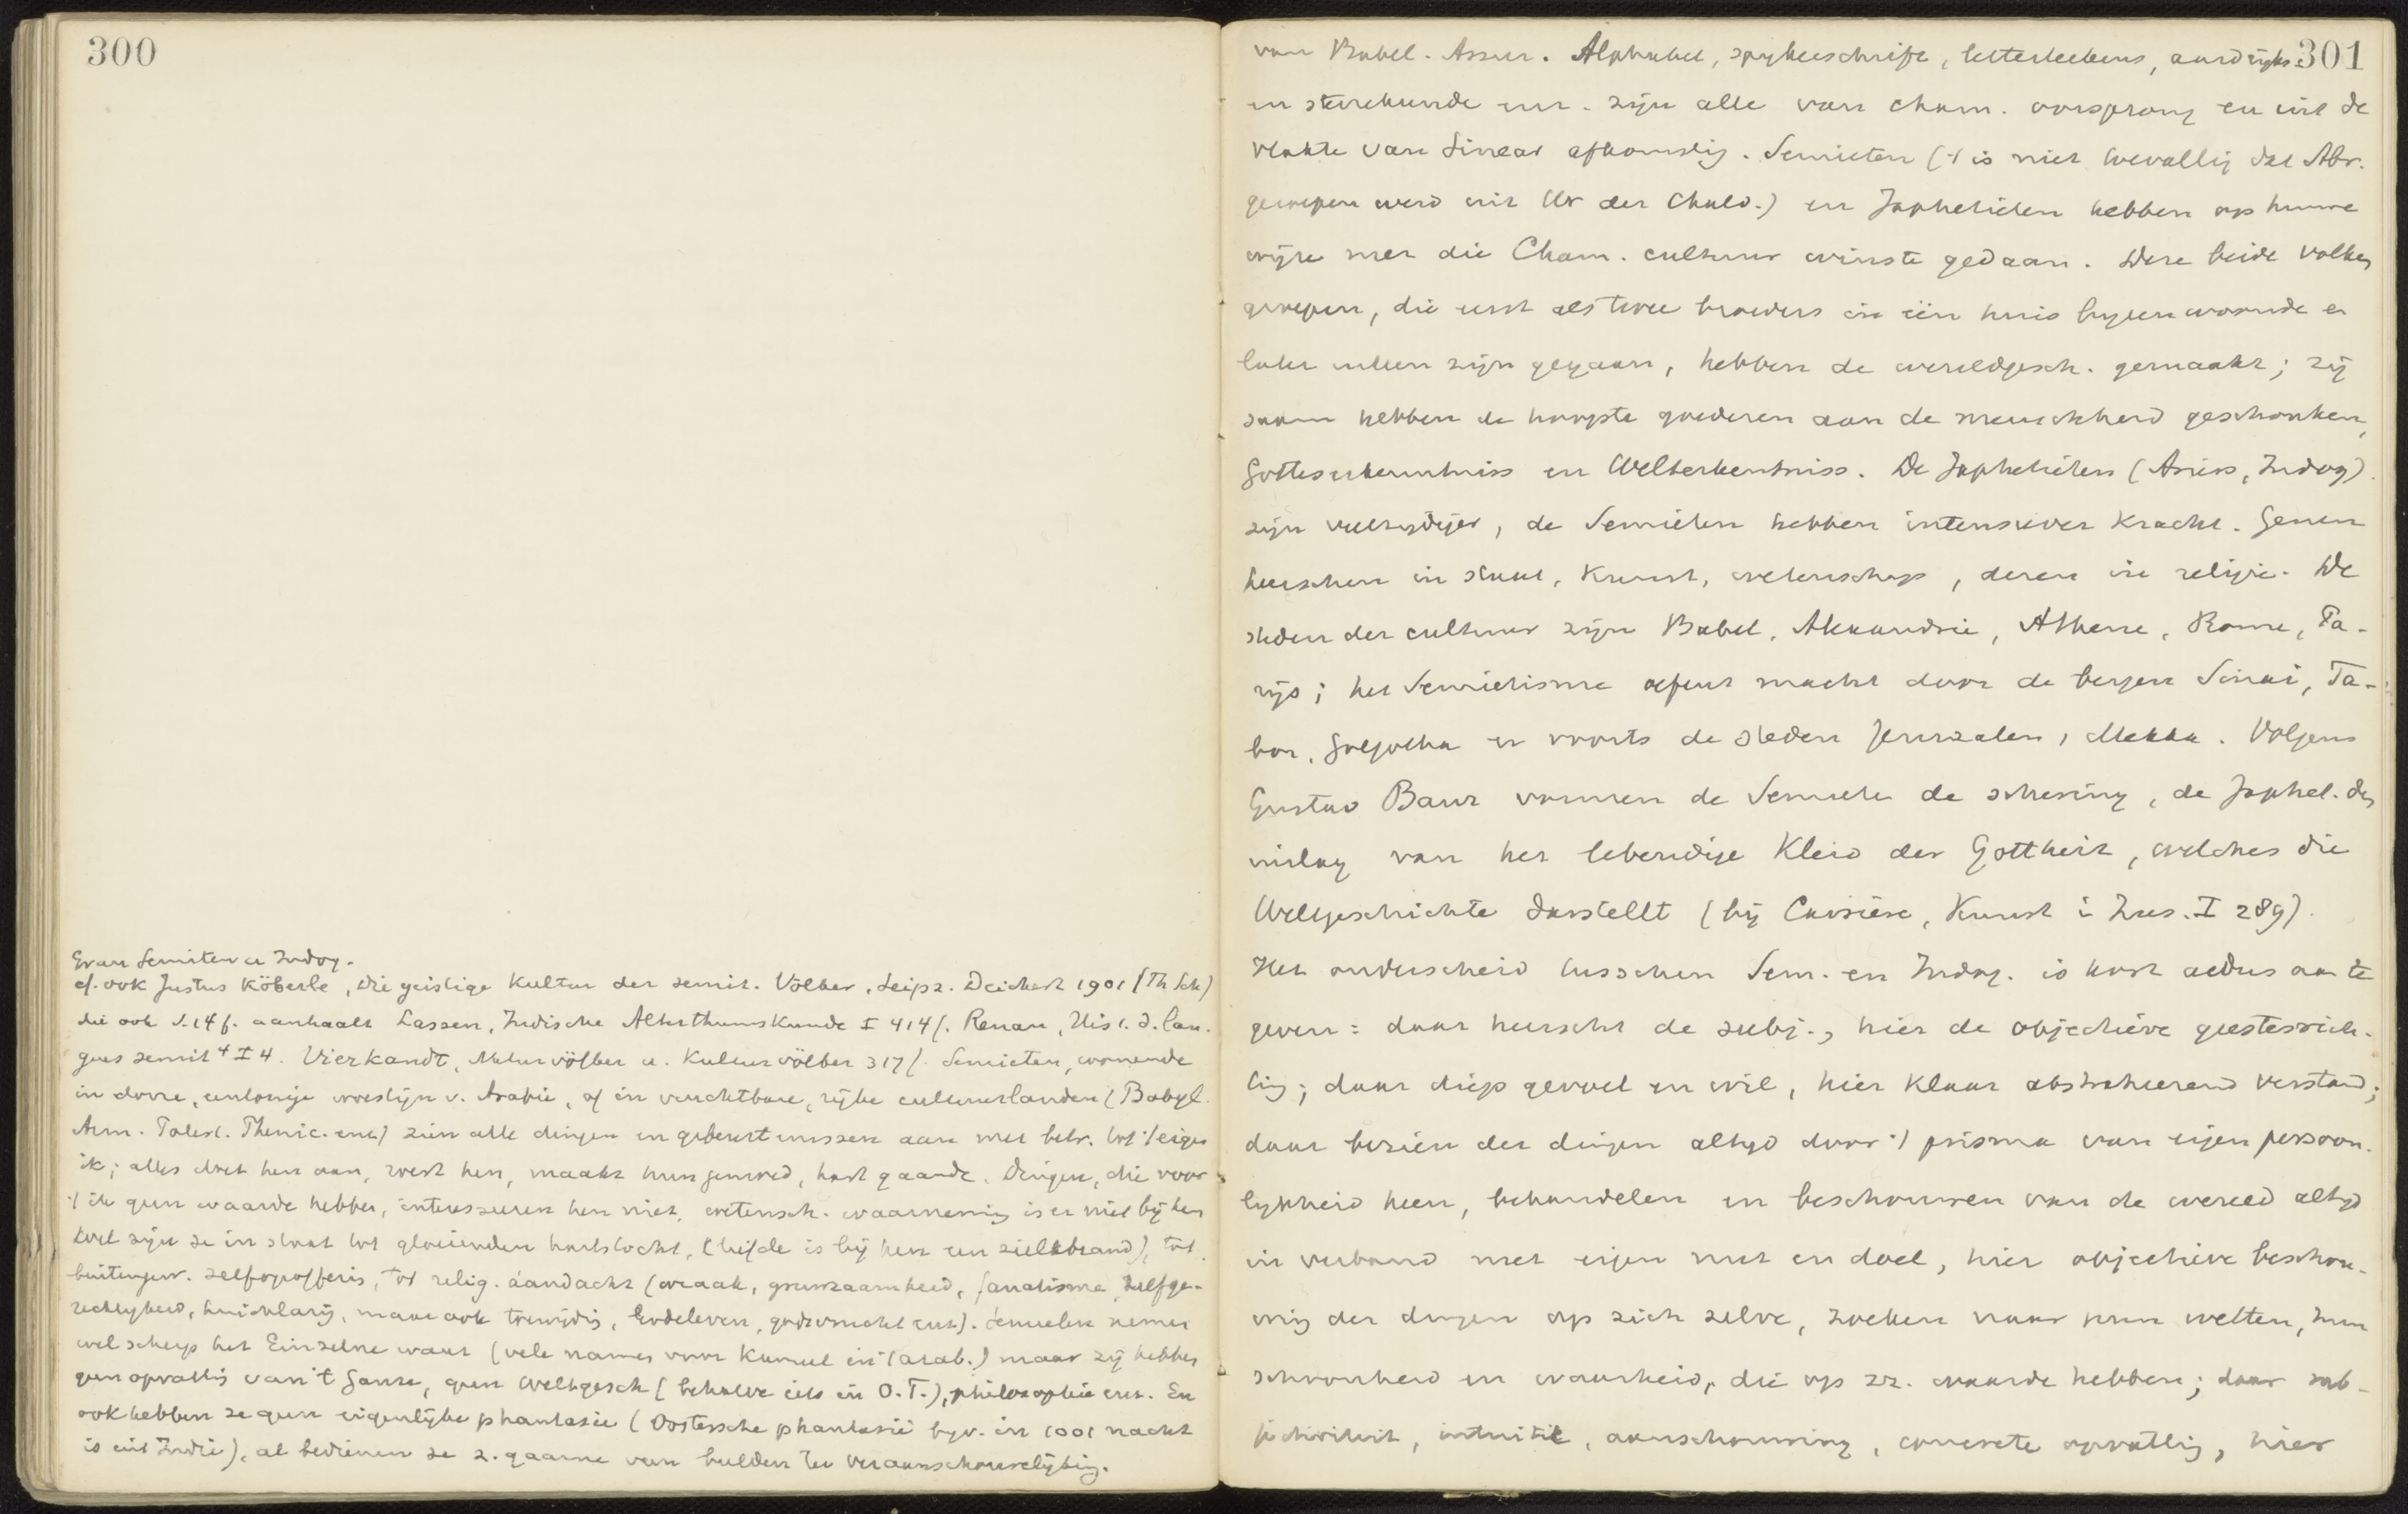 300
Gv. an Semiten en Indog.
cf. ook Justus Köberle, Die geistige Kultur der semit. Völker, Leipz. Deichert 1901 (Th Sch)
die ook S. 14 f. aanhaalt Lassen, Indische Alterthumskunde I 414 f. Renan, His t. d. lan-
gues semit⁴ I 4. Vierkandt, Naturvölker u. Kulturvölker 317 f. Semieten, wonende
in dorre, eentonige woestijn v. Arabie, of in vruchtbare, rijke cultuurlanden (Babyl.
Arm. Palest. Phenic. enz) zien alle dingen en gebeurtenissen aan met betr. tot 't eigen
ik; alles doet hen aan, wekt hen, maakt hun gemoed, hart gaande. Dingen, die voor
't ik geen waarde hebben, interesseren hen niet, wetensch. waarneming is er niet bij hen
Wel zijn ze in staat tot gloeienden hartstocht, (liefde is bij hen een zielsbrand), tot
buitengew. zelfopoffering, tot relig. aandacht (wraak, gruwzaamheid, fanatisme, zelfge-
rechtigheid, huichelarij, maar ook trouwdig, liefdeleven, godsvrucht enz). Semieten nemen
wel scherp het Einzelne waar (vele namen voor Kameel in 't arab.) maar zij hebben
geen opvatting van 't Ganze, geen Weltgesch (behalve iets in O.T.), philosophie enz. En
ook hebben ze geen eigenlijke phantasie (Oostersche phantasie bijv. in 1001 nacht
is uit Indië), al bedienen ze z. gaarne van beelden ter veraanschouwelijking.
301
van Babel. Assur. Alphabet, spijkerschrift, letterteekens, aardrijks-
en sterrekunde enz. zijn alle van Cham. oorsprong en uit de
vlakte van Sinear afkomstig. Semieten ('t is niet toevallig dat Abr.
geroepen werd uit Ur der Chald.) en Japhetieten hebben op hunne
wijze met die Cham. cultuur winste gedaan. Deze beide volken
groepen, die eerst als twee broeders in één huis bijeen woonde en
later uiteen zijn gegaan, hebben de wereldgesch. gemaakt; zij
saam hebben de hoogste goederen aan de menschheid geschonken,
Gotteserkenntniss en Welterkentniss. De Japhetieten (Ariers, Indog)
zijn veelzijdiger, de Semieten hebben intensiever kracht. Genen
heerschen in staat, kunst, wetenschap, dezen in religie. De
steden der cultuur zijn Babel, Alexandrie, Athene, Rome, Pa-
rijs; het Semietisme oefent macht door de bergen Sinai, Ta-
bor, Golgotha en voorts de steden Jeruzalem, Mekka. Volgens
Gustav Baur vormen de Semieten de schering, de Japhet. den
inslag van het lebendige Kleid der Gottheit, welches die
Weltgeschichte darstellt (bij Carrière, Kunst i Zus. I 289).
Het onderscheid tusschen Sem. en Indog. is kort aldus aan te
geven: daar heerscht de subj., hier de objectieve geestesrich-
ting; daar diep gevoel en wil, hier klaar abstraheerend verstand;
daar bezien der dingen altijd door 't prisma van eigen persoon-
lijkheid heen, behandelen en beschouwen van de wereld altijd
in verband met eigen nut en doel, hier objectieve beschou-
wing der dingen op zich zelve, zoeken naar hun wetten, hun
schoonheid en waarheid, die op zz. waarde hebben; daar sub-
jectiviteit, intuitie, aanschouwing, concrete opvatting, hier